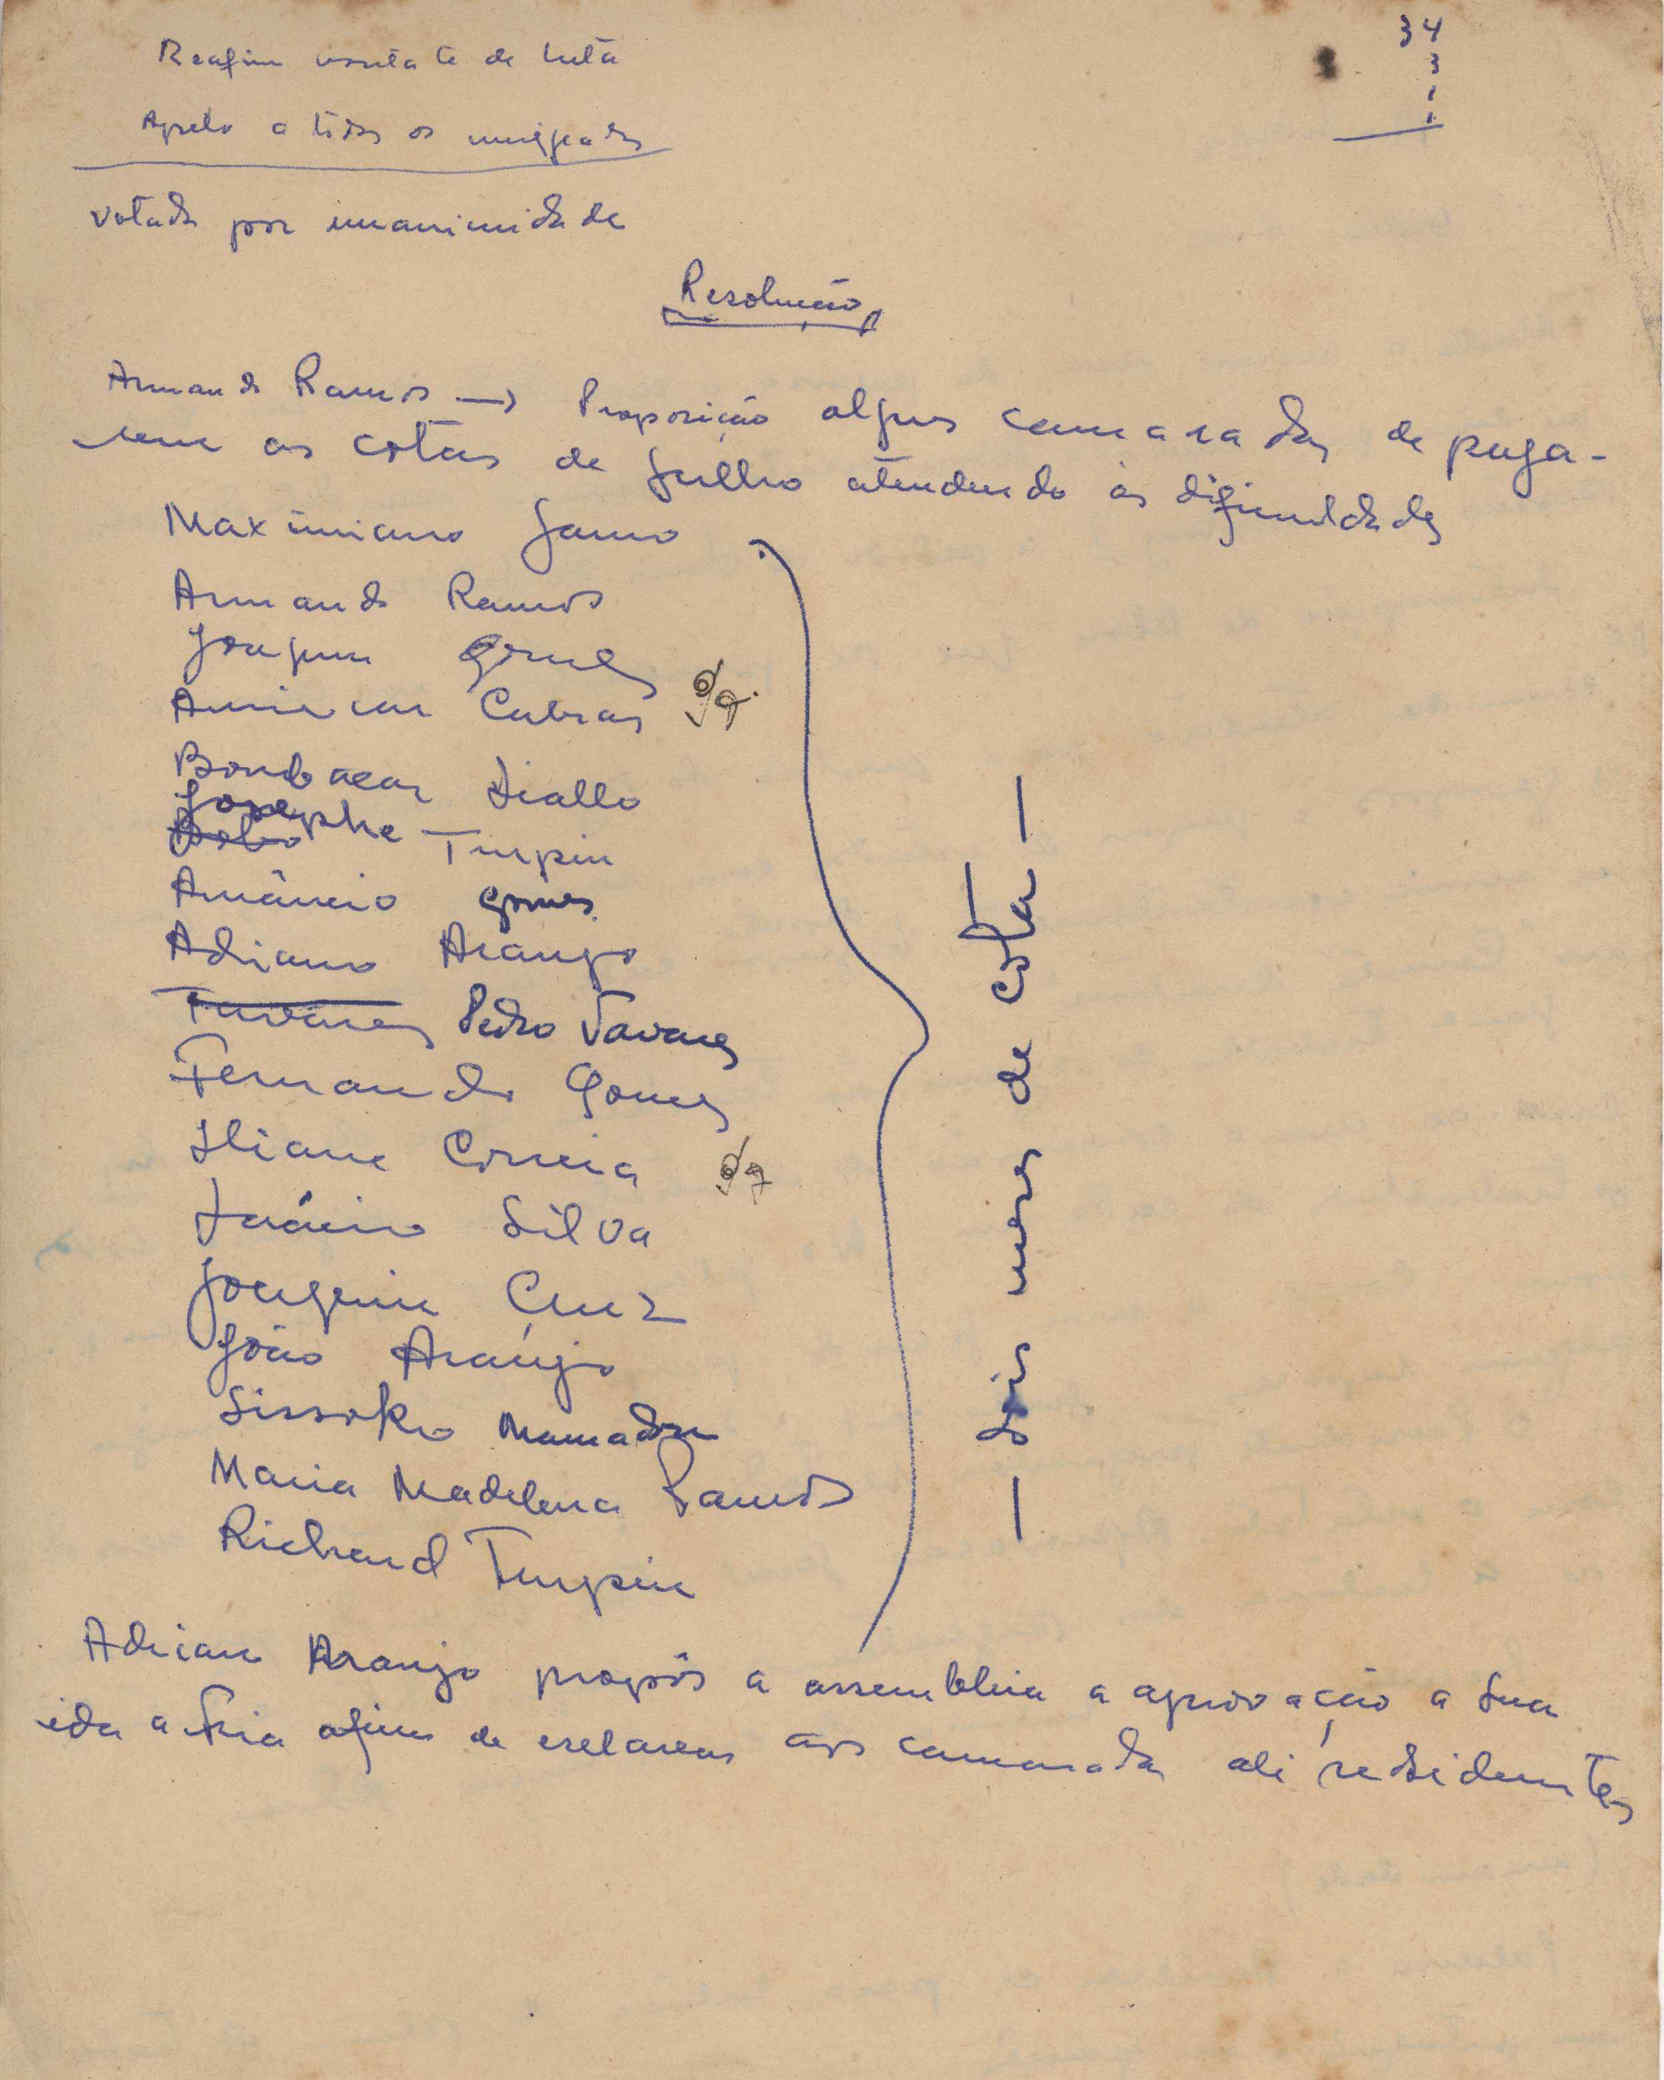 34
3
1
1
Reafirm vontade de luta
Apelo a todos os emigrados
Votada por unanimidade
Resolução
Armando Ramos → Proposição alguns camaradas de paga-
rem as cotas de Julho atendendo às dificuldades
Maximiano Gama
Armando Ramos
Joaquim Gomes
Amilcar Cabral
Boubacar Diallo
Josephe Turpin
Amâncio Gomes
Adriano Araujo
Tavares Pedro Tavares
Fernando Gomes
Iliane Correia
Inácio Silva
Joaquim Cruz
João Araújo
Sissoko Mamadu
Maria Madelena Ramos
Richard Turpin
— Dois meses de cota —
Adriano Araujo propôs a assembleia a aprovação a sua
ida a Fria afim de esclarecer aos camaradas ali residentes